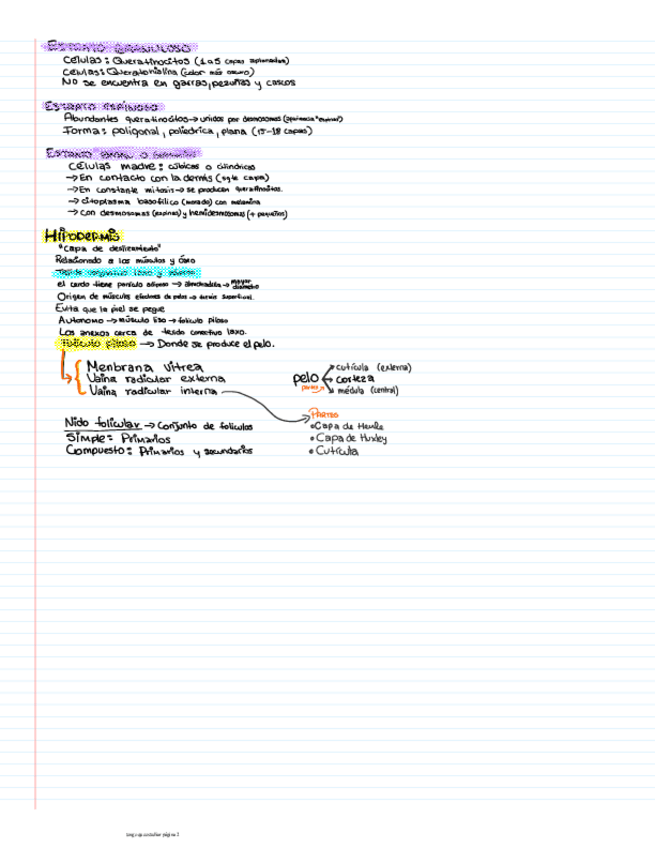 Estrato granuloso
Células: Queratinocitos (1 a 5 capas aplanadas)
Células: Queratohialina (color más oscuro)
No se encuentra en garras, pezuñas y cascos
Estrato espinoso
Abundantes queratinocitos → unidos por desmosomas (apariencia "espinas")
Forma: poligonal, poliédrica, plana (15-18 capas)
Estrato basal o
Células madre: cúbicas o cilíndricas
→ En contacto con la dermis (sgte capa)
→ En constante mitosis → se producen queratinocitos.
→ citoplasma basofílico (morado) con melanina
→ con desmosomas (espinas) y hemidesmosomas (+ pequeños)
Hipodermis
"Capa de deslizamiento"
Relacionado a los músculos y óseo
Tejido conjuntivo laxo y adiposo
el cerdo tiene panículo adiposo → almohadilla → mayor diámetro
Origen de músculos efectores de pelos → dermis superficial.
Evita que la piel se pegue
Autónomo → músculo liso → folículo piloso
Los anexos cerca de tejido conectivo laxo.
Folículo piloso → Donde se produce el pelo.
Menbrana vítrea
Vaina radicular externa
Vaina radicular interna
pelo
partes
cutícula (externa)
corteza
médula (central)
Partes
• Capa de Henle
• Capa de Huxley
• Cutícula
Nido folicular → Conjunto de folículos
Simple: Primarios
Compuesto: Primarios y secundarios